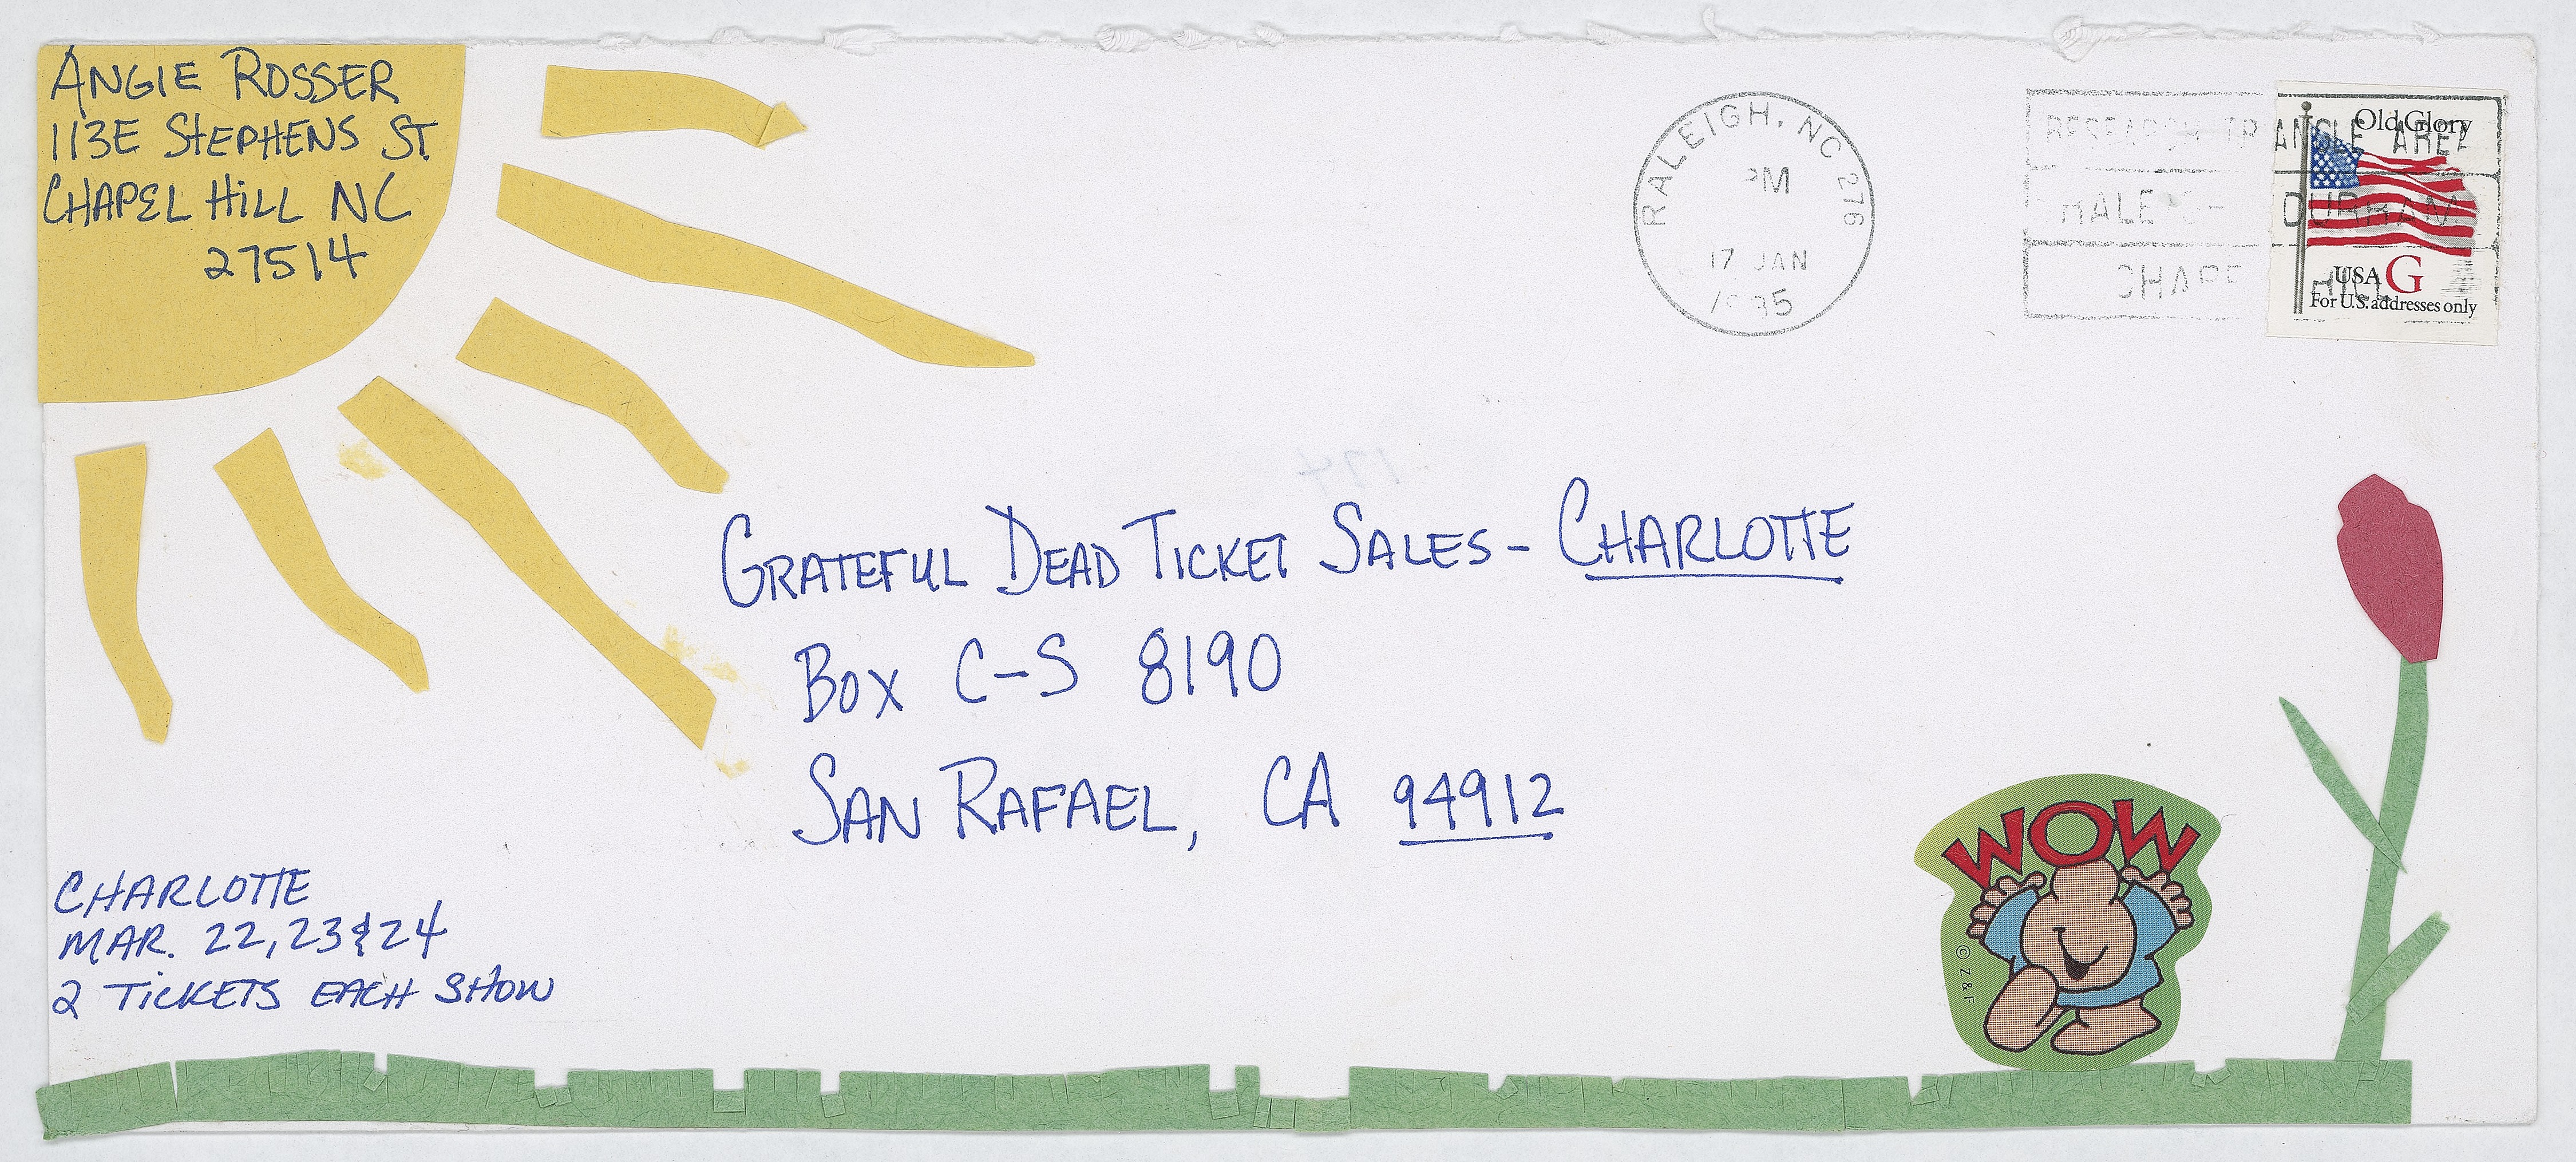 ANGIE ROSSER
113E STEPHENS ST.
CHAPEL HILL NC
27514
RALEIGH, NC 276
PM
17 JAN
1995
RESEARCH TRIANGLE AREA
RALEIGH - DURHAM
CHAPEL HILL
Old Glory
USA G
For U.S. addresses only
GRATEFUL DEAD TICKET SALES - CHARLOTTE
BOX C-S 8190
SAN RAFAEL, CA 94912
CHARLOTTE
MAR. 22, 23 & 24
2 TICKETS EACH SHOW
WOW
© Z & F